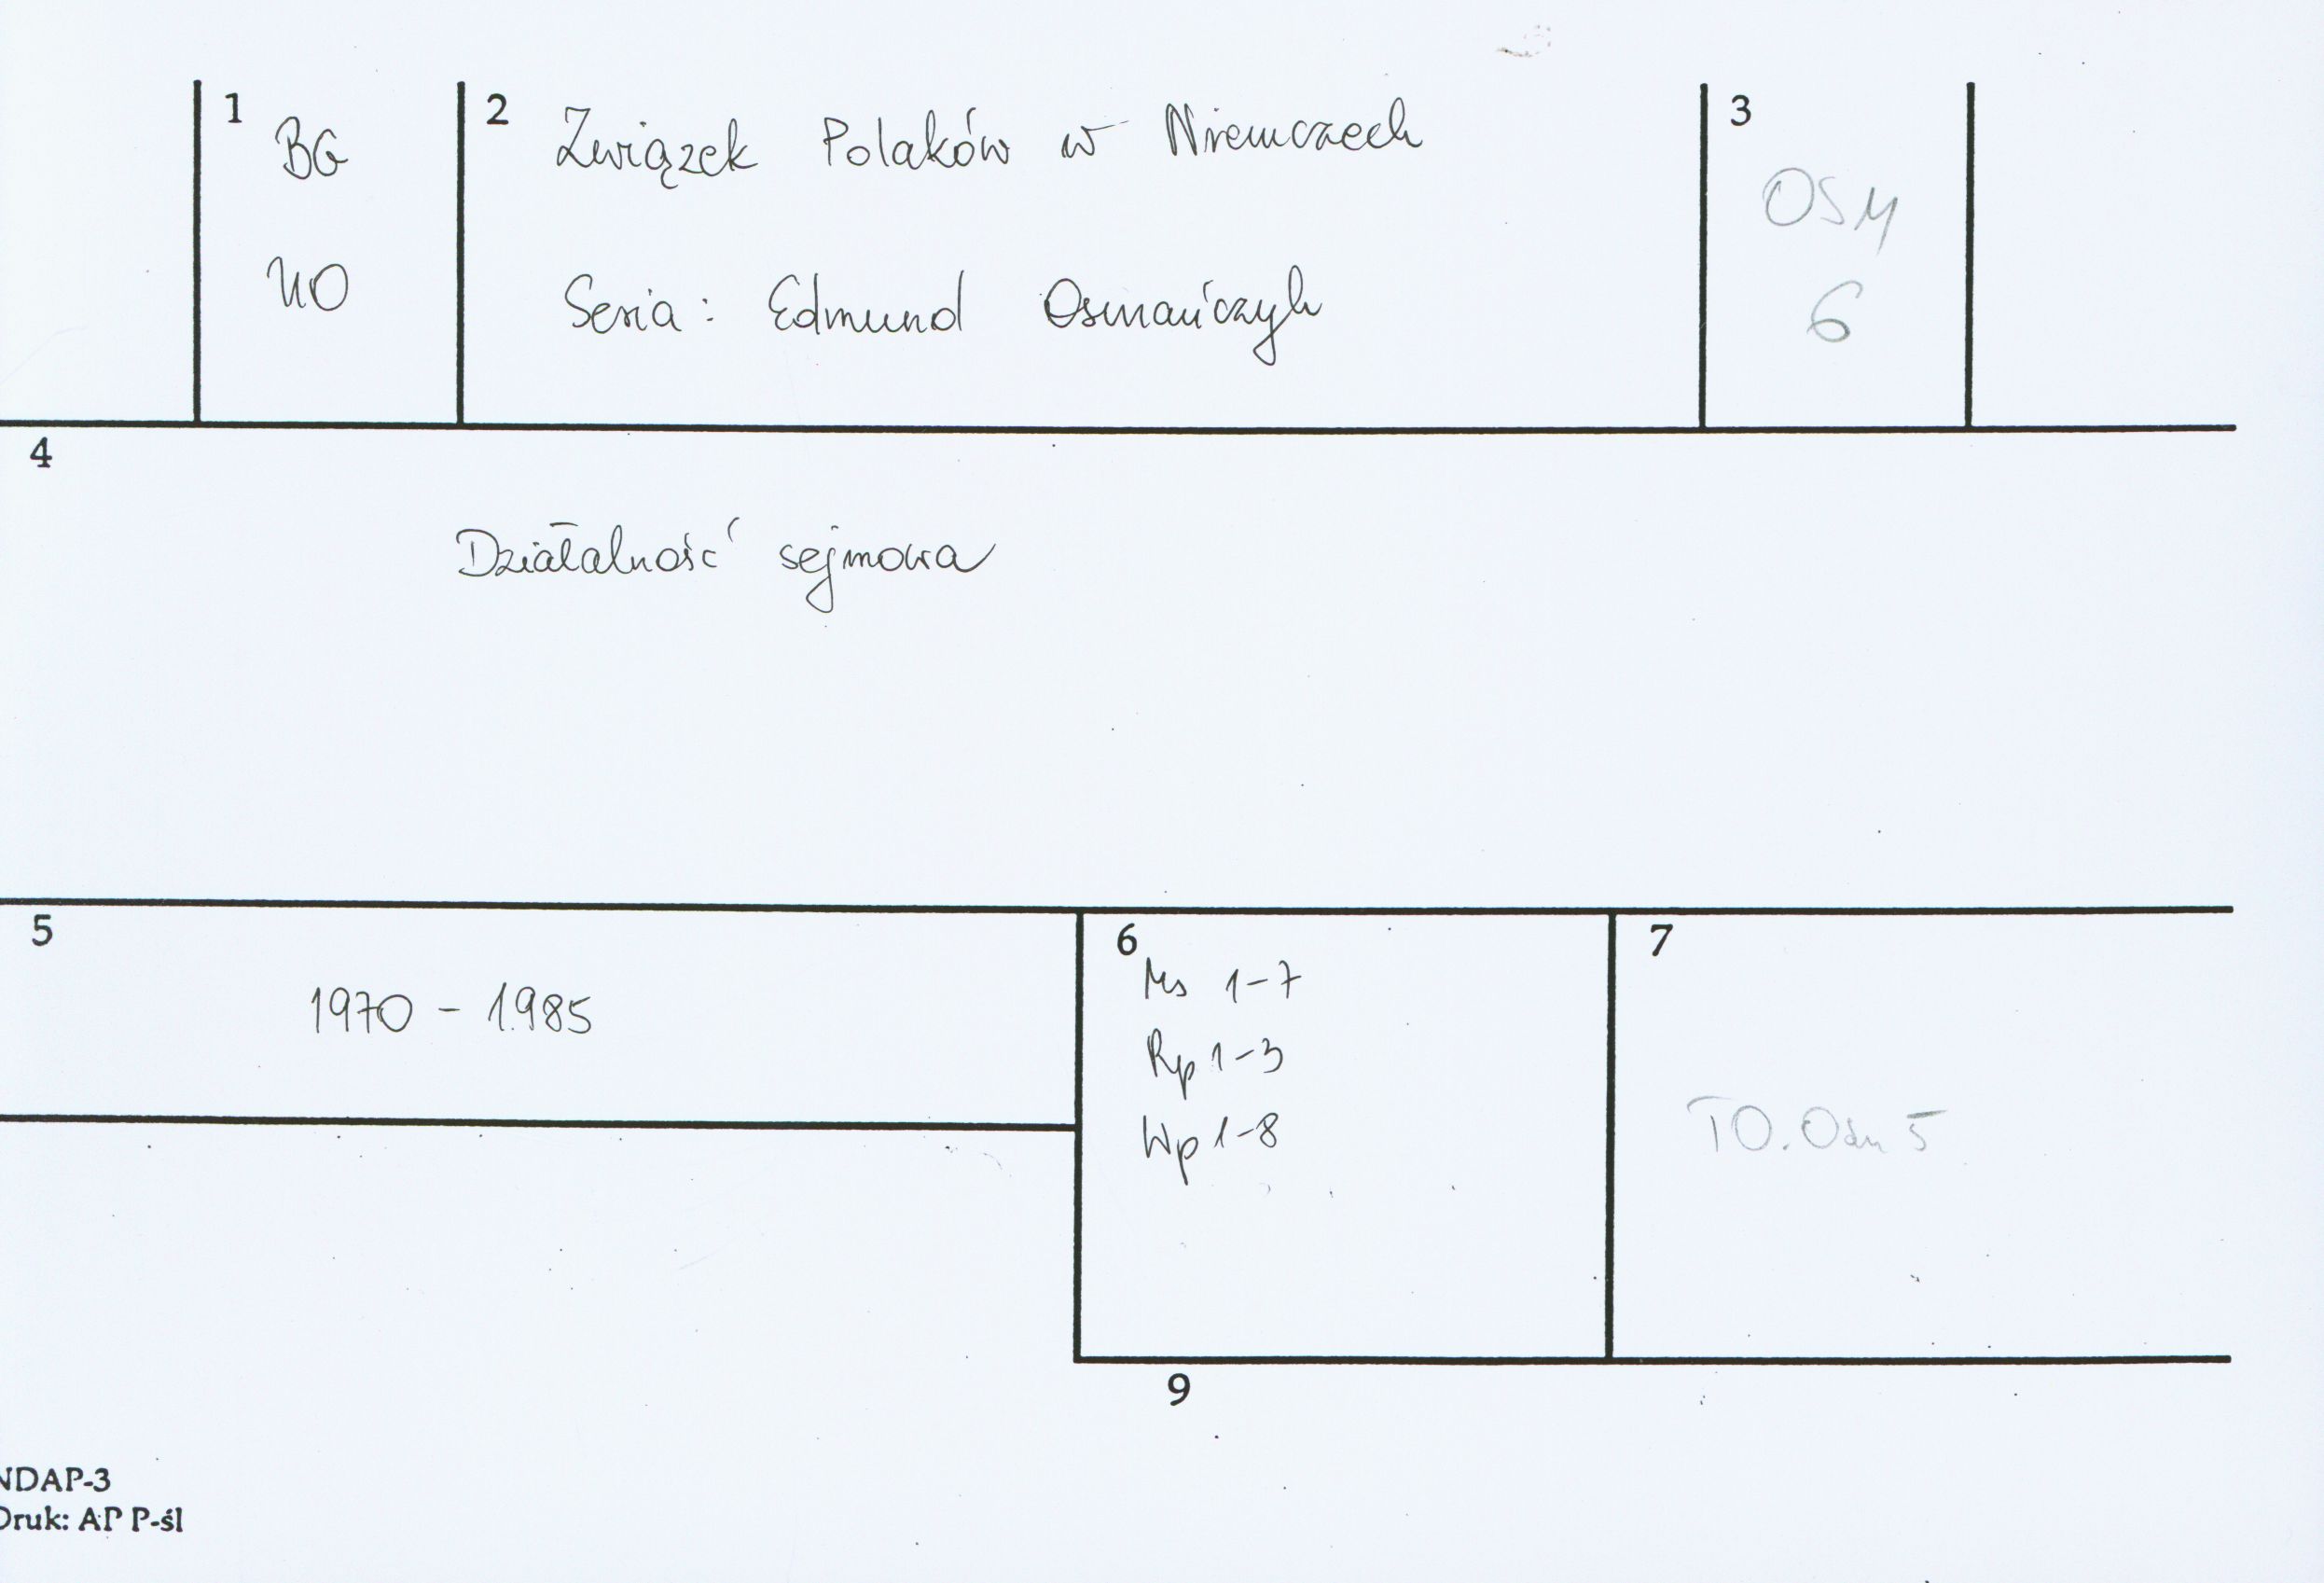 1
BG
UO
2
Związek Polaków w Niemczech
Seria: Edmund Osmańczyk
3
OSM
6
4
Działalność sejmowa
5
1970 - 1985
6
Ms 1-7
Rp 1-3
Wp 1-8
7
TO. Osm 5
9
NDAP-3
Druk: AP P-śl